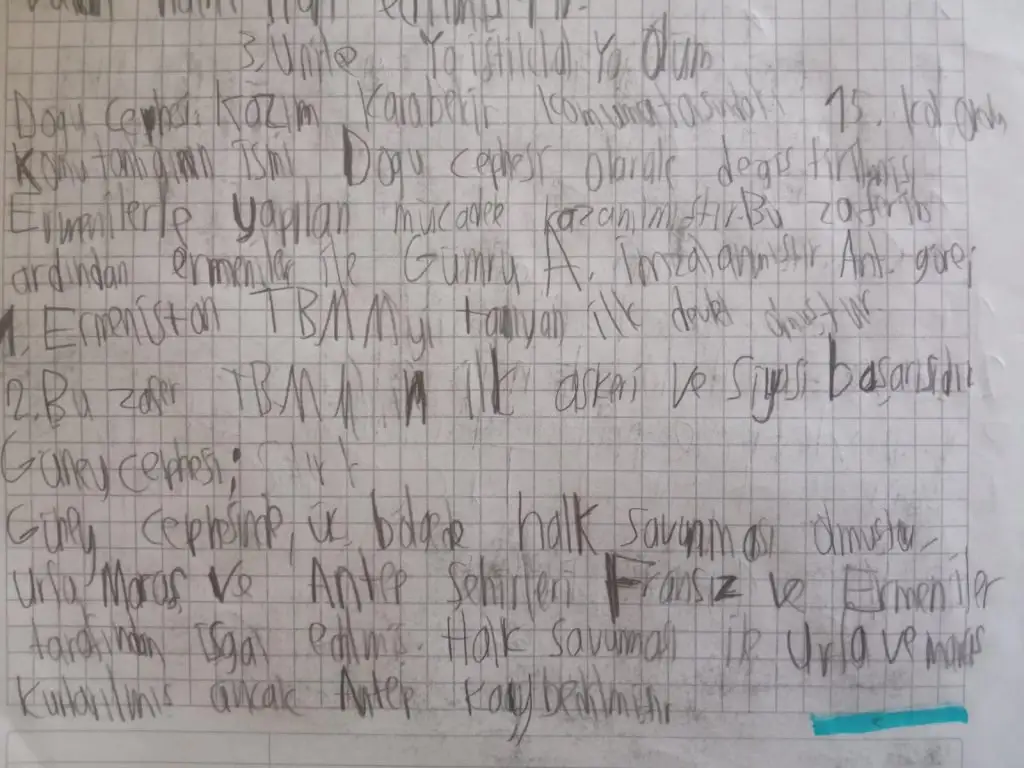 3. Unite Ya istiklal Ya Ölüm
Dogu cephesi: Kazım Karabekir 15. Kolordu
Komutanlıgının ismi Dogu cephesi olarak degistirilmis
Ermenilerle yapılan mücadele kazanılmıstır. Bu zaferin
ardından ermeniler ile Gümrü A. imzalanmıstır Ant. göre;
1. Ermenistan TBMMyi tanıyan ilk devlet olmustur.
2. Bu zafer TBMM n ilk askeri ve siyasi başarısıdır
Güney cephesi;
Güney cephesinde, üc bölgede halk savunması olmustur
Urfa, Maraş ve Antep sehirleri Fransız ve Ermeniler
tarafından isgal edilmis. Halk savunması ile Urfa ve maras
Kurtarılmıs ancak Antep kaybedilmistir